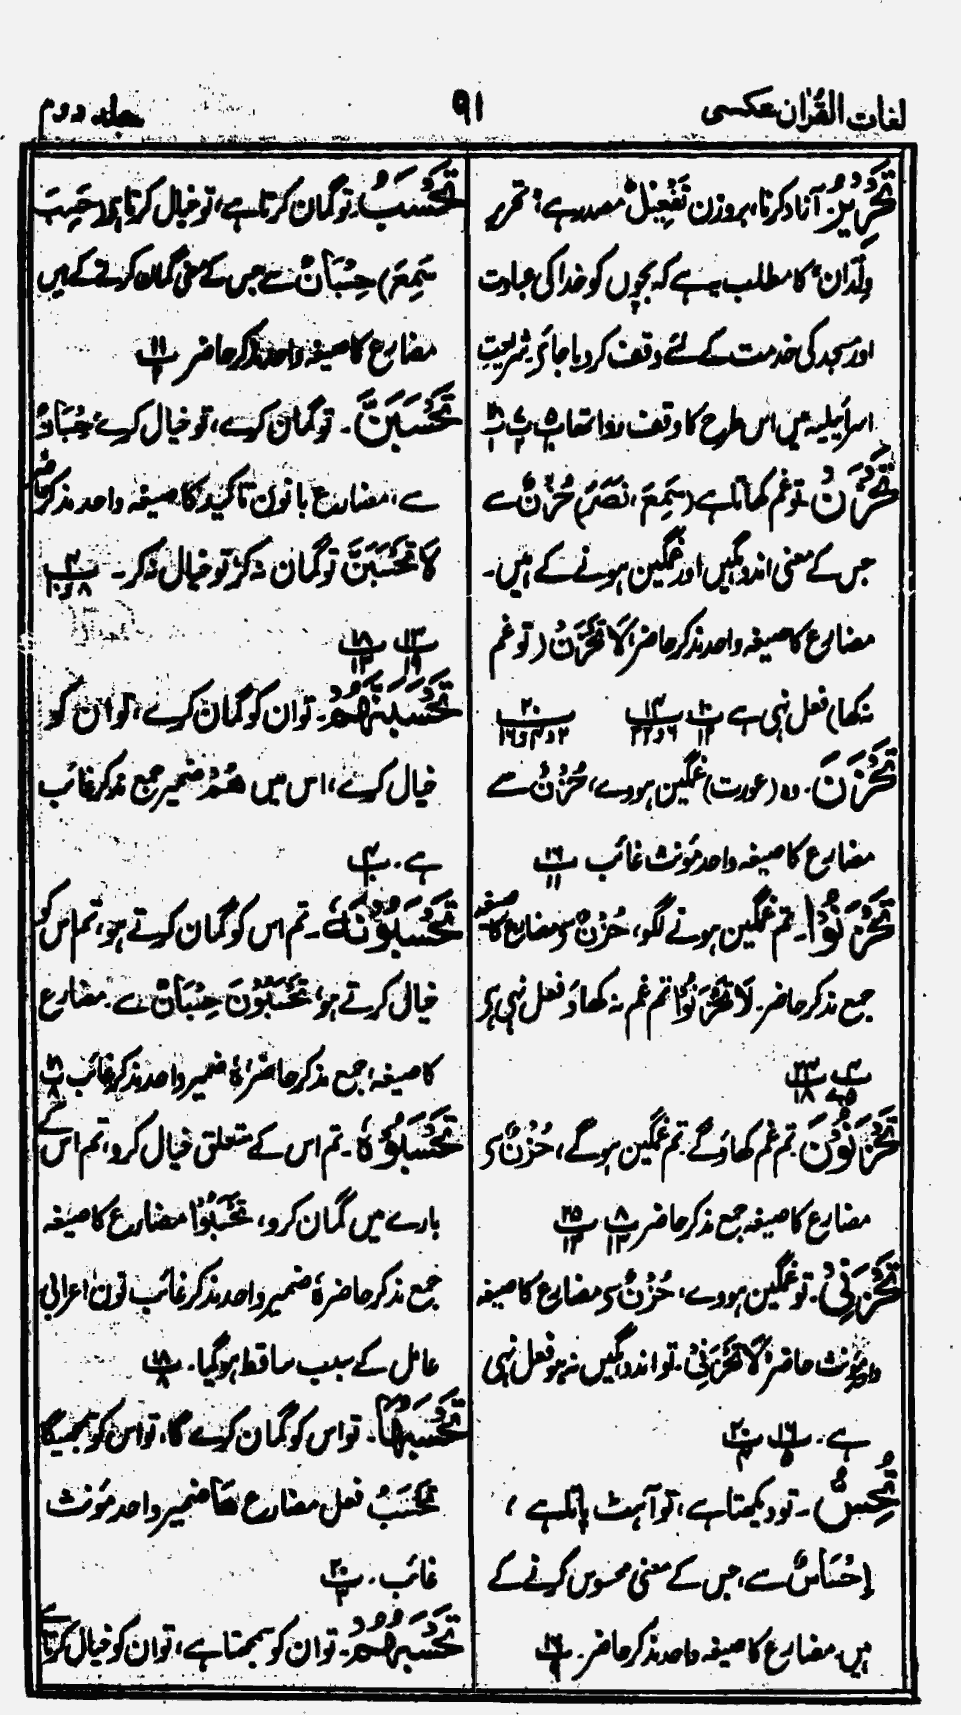 لغات القرآن عکسی
۹۱
جلد دوم
تَحْرِيْرُ آزاد کرنا، بروزن تَفْعِيْلٌ مصدر ہے؛ تحریر
وِلْدَان کا مطلب یہ ہے کہ بچوں کو خدا کی عبادت
اور مسجد کی خدمت کے لئے وقف کر دیا جائے شریعتِ
اسرائیلیہ میں اس طرح کا وقف روا تھا
تَحْزَنُ۔ تو غم کھاتا ہے (سَمِعَ، نَصَرَ) حُزْنٌ سے
جس کے معنی اندوہگیں اور غمگین ہونے کے ہیں۔
مضارع کا صیغہ واحد مذکر حاضر؛ لَا تَحْزَنْ (تو غم
نہ کھا) فعل نہی ہے ۱۴ ۲۰
تَحْزَنَ۔ وہ (عورت) غمگین ہووے، حُزْنٌ سے
مضارع کا صیغہ واحد مؤنث غائب ۱۶
تَحْزَنُوْا۔ تم غمگین ہونے لگو، حُزْنٌ سے مضارع کا صیغہ
جمع مذکر حاضر۔ لَا تَحْزَنُوْا تم غم نہ کھاؤ فعل نہی ہے
تَحْزَنُوْنَ تم غم کھاؤ گے تم غمگین ہو گے، حُزْنٌ سے
مضارع کا صیغہ جمع مذکر حاضر ۸ ۲۵
تَحْزَنِيْ۔ تو غمگین ہووے، حُزْنٌ سے مضارع کا صیغہ
واحد مؤنث حاضر؛ لَا تَحْزَنِيْ۔ تو اندوہگیں نہ ہو فعل نہی
ہے۔ ۱۶ ۲۰
تُحِسُّ۔ تو دیکھتا ہے، تو آہٹ پاتا ہے،
اِحْسَاسٌ سے، جس کے معنی محسوس کرنے کے
ہیں۔ مضارع کا صیغہ واحد مذکر حاضر۔ ۱۶
تَحْسَبُ۔ تو گمان کرتا ہے، تو خیال کرتا ہے (حَسِبَ
سَمِعَ) حِسْبَانٌ سے جس کے معنی گمان کرنے کے ہیں
مضارع کا صیغہ واحد مذکر حاضر ۱۱
تَحْسَبَنَّ۔ تو گمان کرے، تو خیال کرے حِسْبَانٌ
سے، مضارع بانون تاکید کا صیغہ واحد مذکر حاضر
لَا تَحْسَبَنَّ تو گمان نہ کر، تو خیال نہ کر۔ ۴
۱۳ ۱۸
تَحْسَبَنَّهُمْ۔ تو ان کو گمان کرے، تو ان کو
خیال کرے، اس میں هُمْ ضمیر جمع مذکر غائب
ہے۔ ۴
تَحْسَبُوْنَهٗ۔ تم اس کو گمان کرتے ہو، تم اس کو
خیال کرتے ہو، تَحْسَبُوْنَ حِسْبَانٌ سے مضارع
کا صیغہ جمع مذکر حاضر، هٗ ضمیر واحد مذکر غائب
تَحْسَبُوْهُ۔ تم اس کے متعلق خیال کرو، تم اس کے
بارے میں گمان کرو، تَحْسَبُوْا مضارع کا صیغہ
جمع مذکر حاضر هٗ ضمیر واحد مذکر غائب نون اعرابی
عامل کے سبب ساقط ہو گیا۔ ۱۸
تَحْسَبُهَا۔ تو اس کو گمان کرے گا، تو اس کو سمجھیگا
تَحْسَبُ فعل مضارع هَا ضمیر واحد مؤنث
غائب۔ ۲۰
تَحْسَبُهُمْ۔ تو ان کو سمجھتا ہے، تو ان کو خیال کرتا ہے